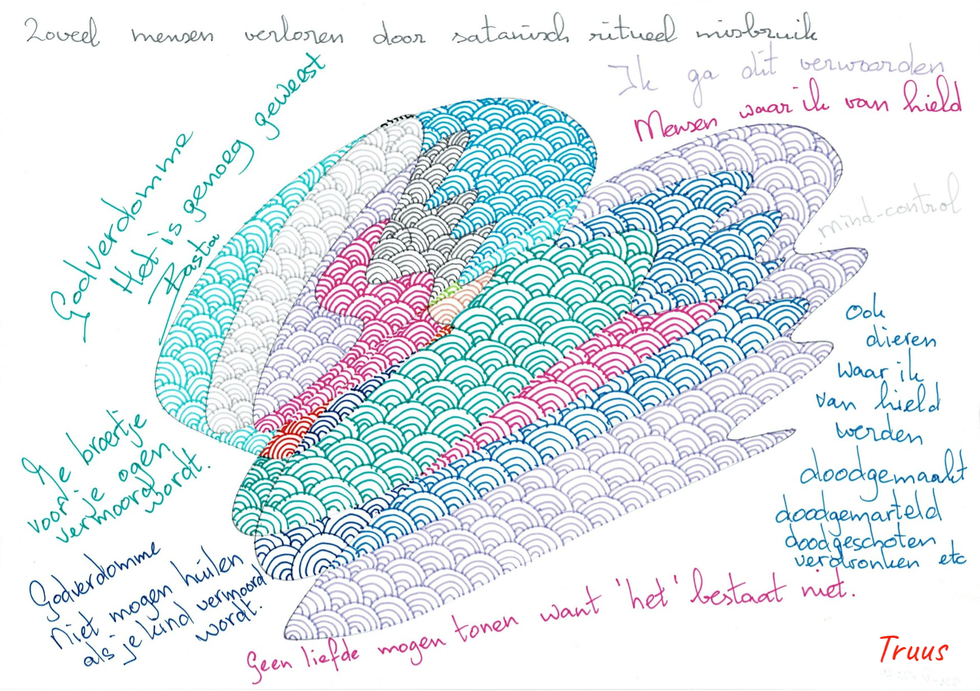 Zoveel mensen verloren door satanisch ritueel misbruik
Ik ga dit verwoorden
Mensen waar ik van hield
mind-control
Ook
dieren
waar ik
van hield
werden
doodgemaakt
doodgemarteld
doodgeschoten
verdronken etc
Godverdomme
Het is genoeg geweest
Basta
Je broertje
voor je ogen
vermoord
wordt.
Godverdomme
Niet mogen huilen
als je kind vermoord
wordt.
Geen liefde mogen tonen want 'het' bestaat niet.
Truus